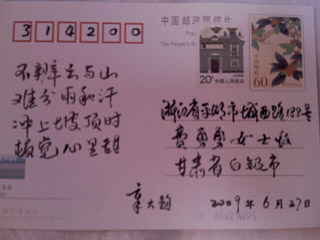 314200
中国邮政明信片
The People's R
20分
中国人民邮政
中国邮政
60分
不辨云与山
难分雨和汗
冲上坡顶时
板宽心里甜
浙江省平湖市城西路199号
费勇勇女士收
甘肃省白银市
章大鹤
2009年6月27日